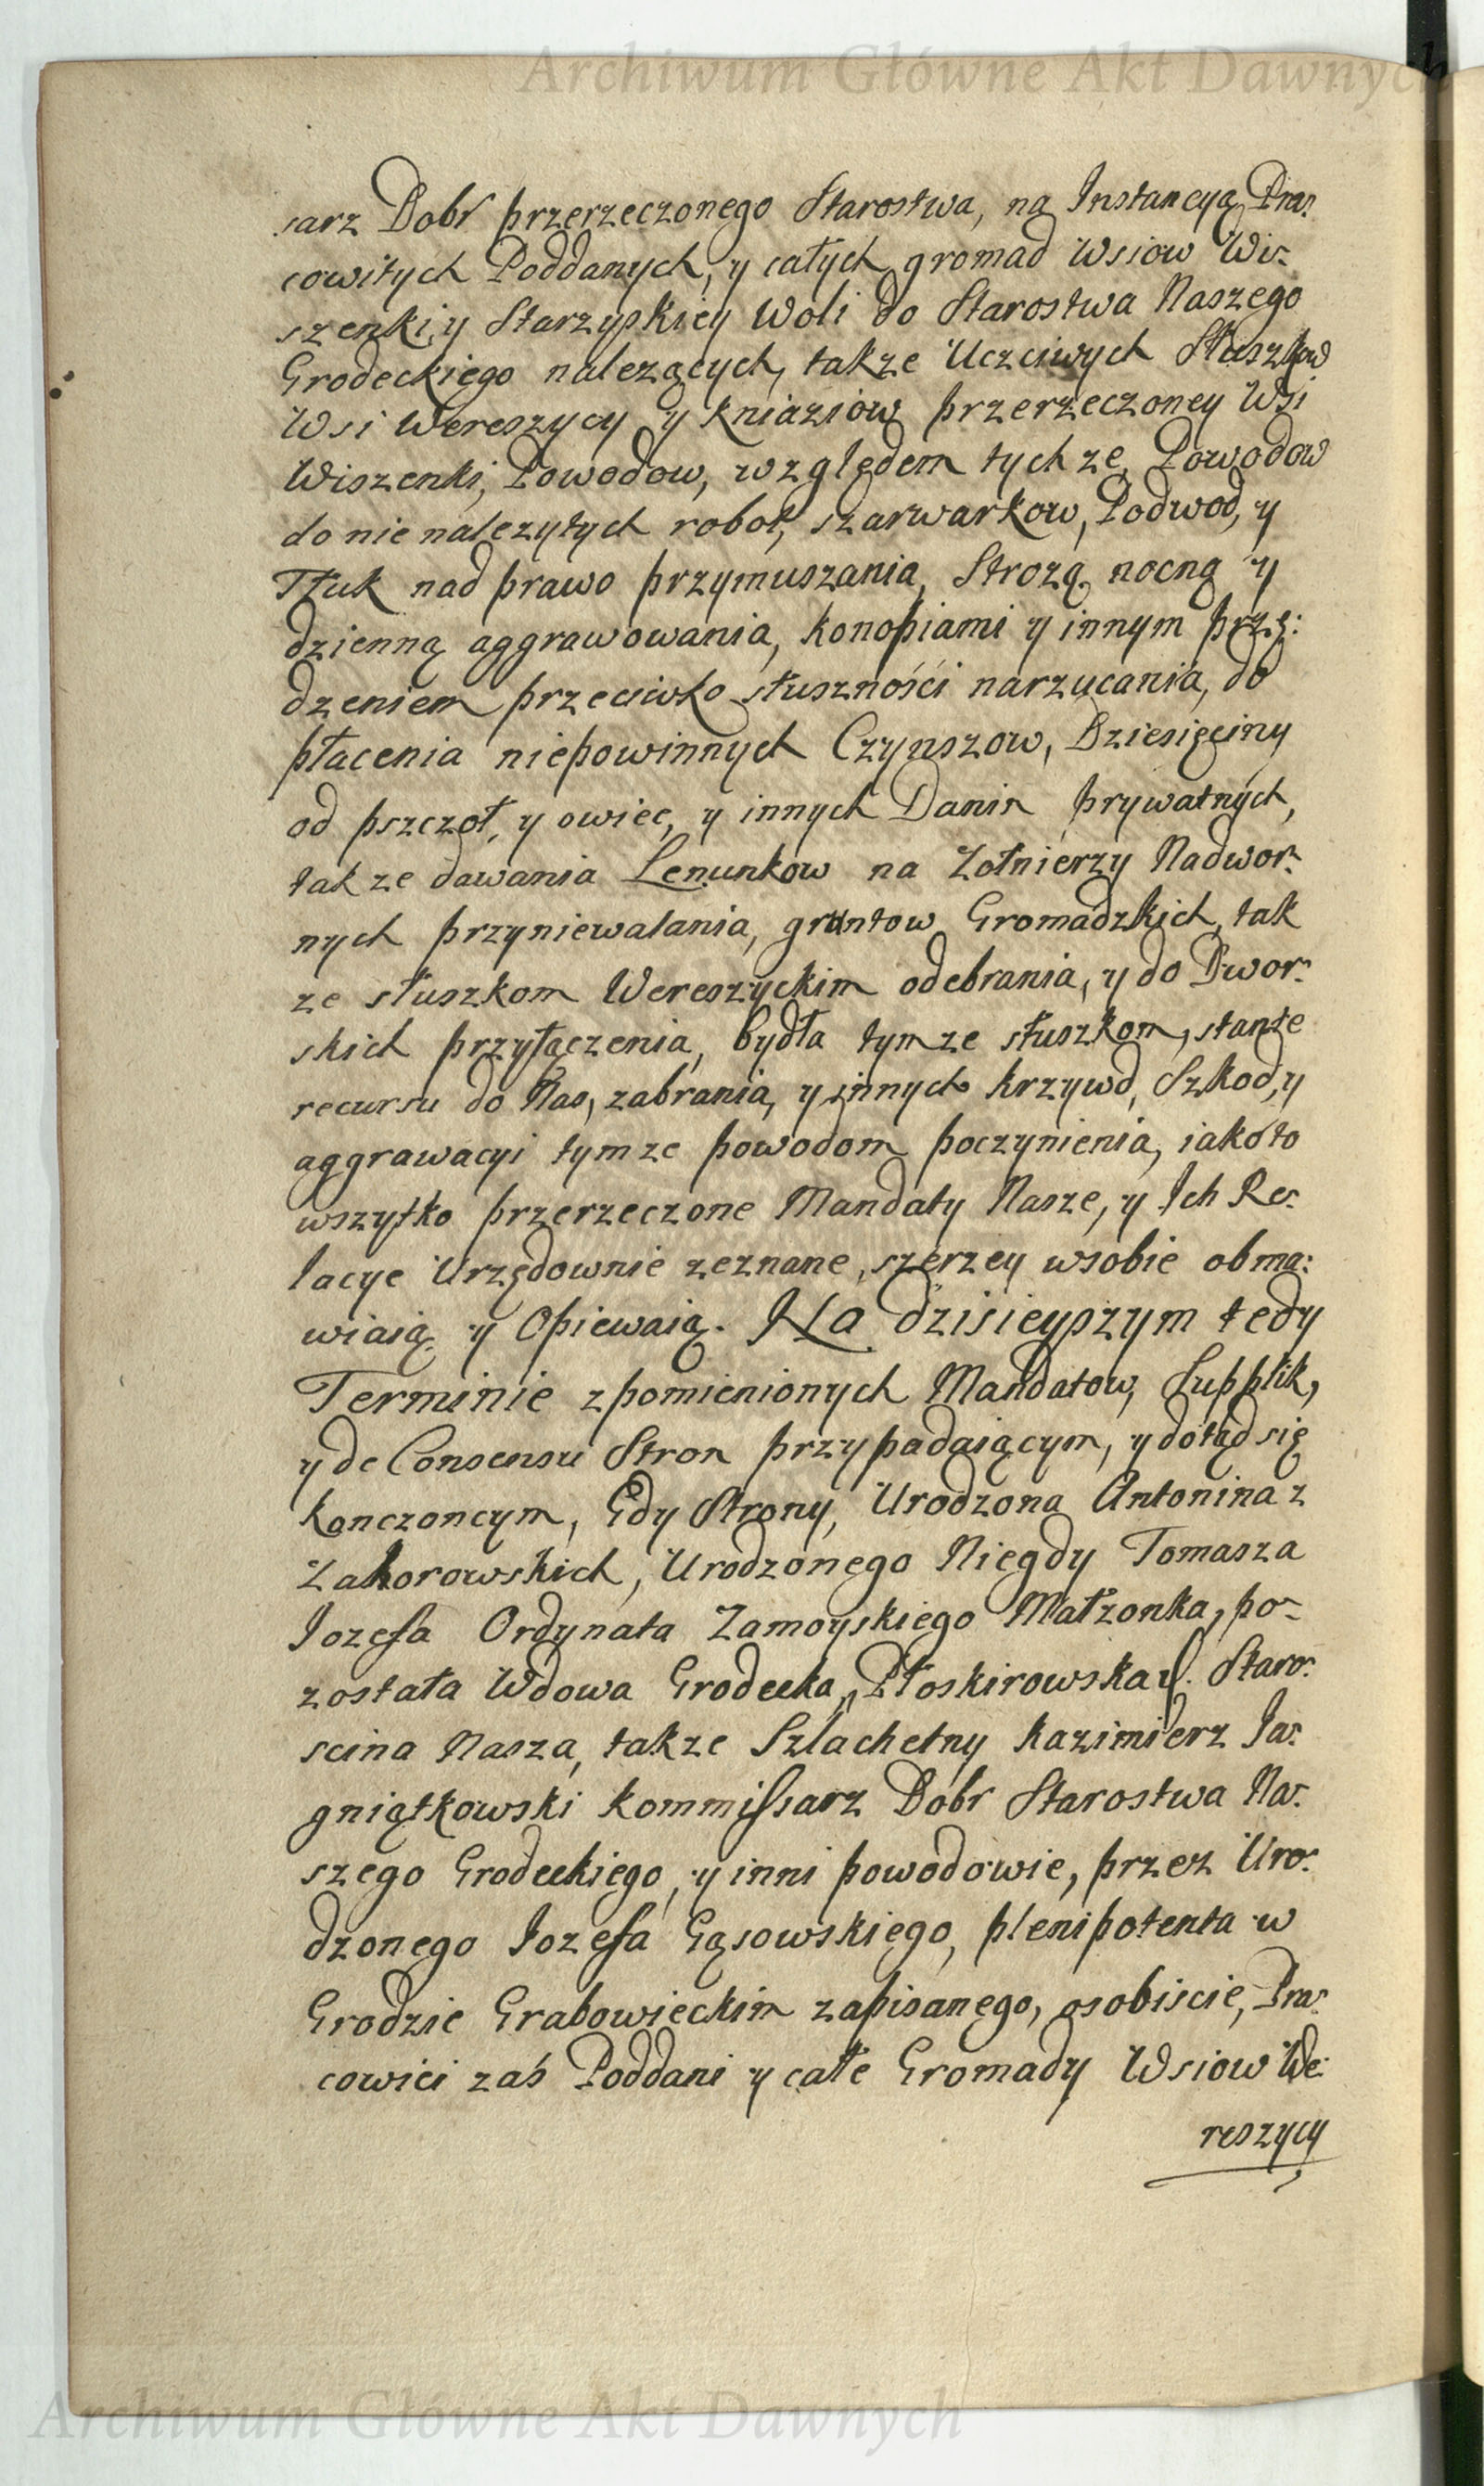 Archiwum Główne Akt Dawnych
sarz Dobr przerzeczonego Starostwa, na Instancyą Pra-
cowitych Poddanych, y całych gromad Wsiow Wi-
szenki, y Starzyskiey Woli do Starostwa Naszego
Grodeckiego nalezących, takze Uczciwych Słuszkow
Wsi Wereszycy y Kniaziow przerzeczoney Wsi
Wiszenki, Powodow, względem tych ze Powodow
do nie nalezytych robot, szarwarkow, Podwod, y
Tłuk nad prawo przymuszania, Strozą nocną y
dzienną aggrawowania, konopiami y innym przę:
dzeniem przeciwko słuszności narzucania, do
płacenia niepowinnych Czynszow, Dziesięciny
od pszczoł, y owiec, y innych Danin prywatnych,
tak ze dawania Lenunkow na Zołnierzy Nadwor-
nych przyniewalania, gruntow Gromadzkich, tak
ze słuszkom Wereszyckim odebrania, y do Dwor-
skich przyłączenia, bydła tymze słuszkom, stante
recursu do Nas, zabrania, y innych krzywd, Szkod, y
aggrawacyi tymze powodom poczynienia, iako to
wszytko przerzeczone Mandaty Nasze, y Ich Re-
lacye Urzędownie zeznane, szerzey wsobie obma:
wiaią y Opiewaią. Na dzisieyszym tedy
Terminie z pomienionych Mandatow, Supplik,
y de Consensu Stron przypadaiącym, y dotąd się
konczoncym, Gdy Strony, Urodzona Antonina z
Zahorowskich, Urodzonego Niegdy Tomasza
Jozefa Ordynata Zamoyskiego Małzonka, po-
została Wdowa Grodecka, Płoskirowska &. Staro-
scina Nasza, takze Szlachetny Kazimierz Ja-
gniątkowski Kommissarz Dobr Starostwa Na-
szego Grodeckiego, y inni powodowie, przez Uro-
dzonego Jozefa Gąsowskiego, plenipotenta w
Grodzie Grabowieckim zapisanego, osobiscie, Pra-
cowici zaś Poddani y całe Gromady Wsiow We-
reszycy
Archiwum Główne Akt Dawnych